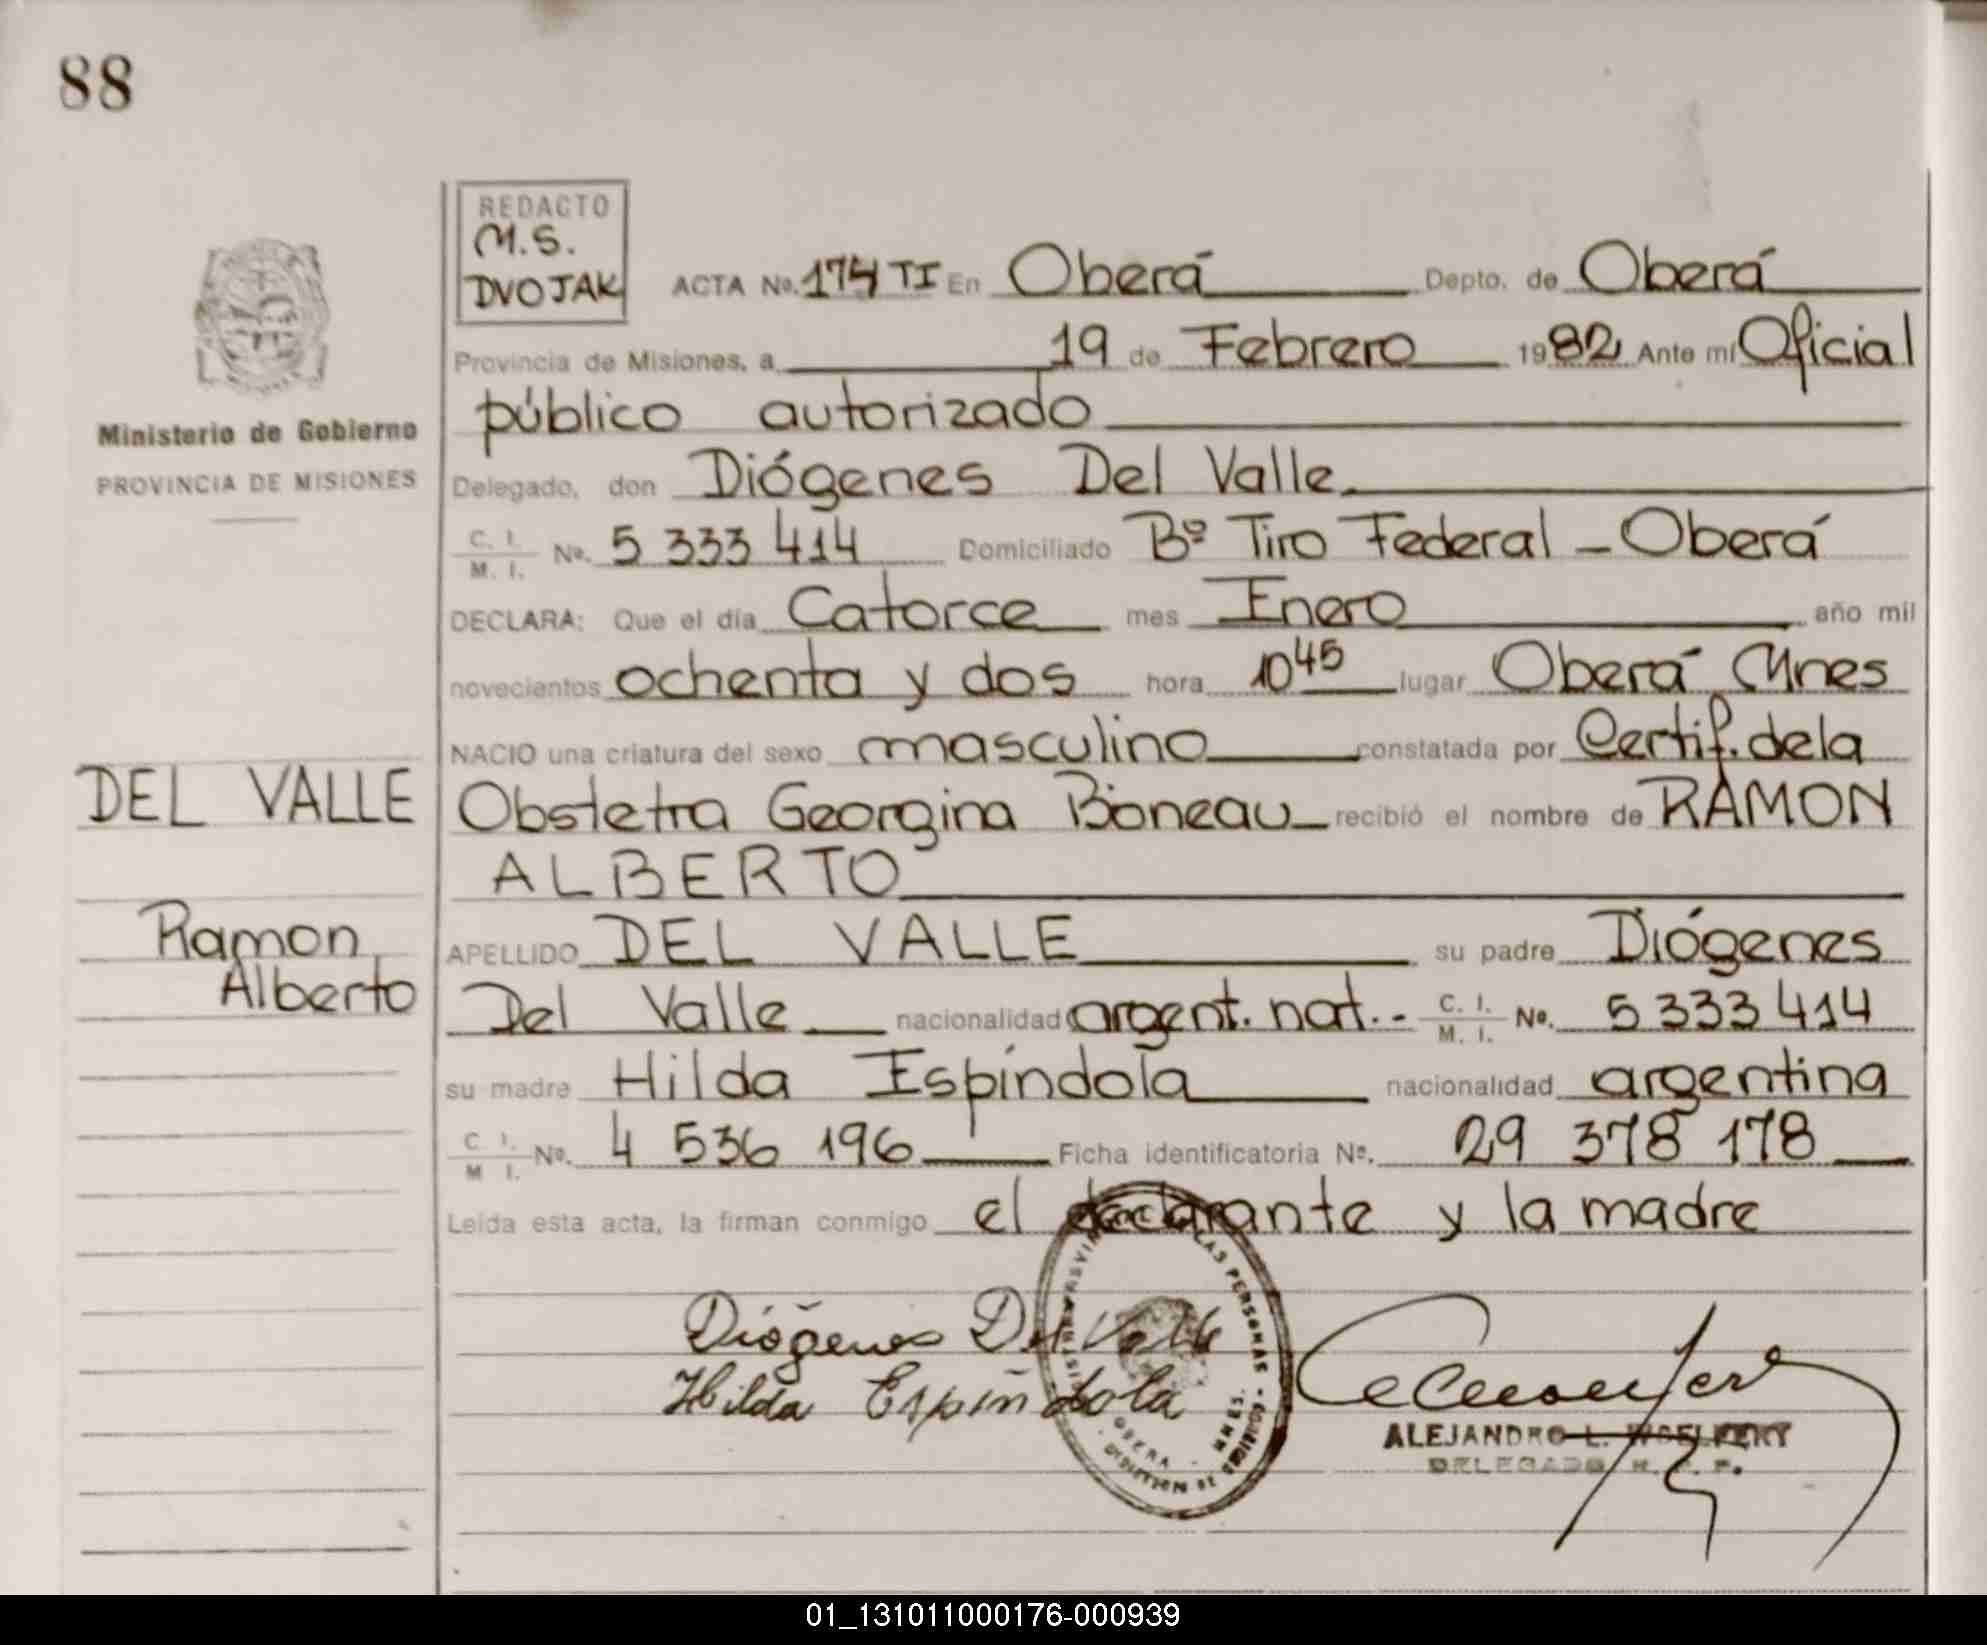 88
REDACTO
M.S.
DVOJAK
ACTA No. 174 TI En Oberá Depto. de Oberá
Provincia de Misiones, a 19 de Febrero 1982 Ante mí Oficial
público autorizado
Ministerio de Gobierno
PROVINCIA DE MISIONES
Delegado, don Diógenes Del Valle
C. I. / M. I. No. 5 333 414 Domiciliado Bº Tiro Federal - Oberá
DECLARA: Que el día Catorce mes Enero año mil
novecientos ochenta y dos hora 10 45 lugar Oberá Mnes
NACIO una criatura del sexo masculino constatada por Certif. de la
DEL VALLE
Obstetra Georgina Bioneau recibió el nombre de RAMON
ALBERTO
Ramon
Alberto
APELLIDO DEL VALLE su padre Diógenes
Del Valle nacionalidad argent. nat. - C. I. / M. I. No. 5 333 414
su madre Hilda Espíndola nacionalidad argentina
C. I. / M I. No. 4 536 196 Ficha identificatoria No. 29 378 178
Leída esta acta, la firman conmigo el declarante y la madre
Diógenes Del Valle
Hilda Espíndola
LAS PERSONAS
OBERA - MNES.
ALEJANDRO L.
DELEGADO R. P. P.
01_131011000176-000939